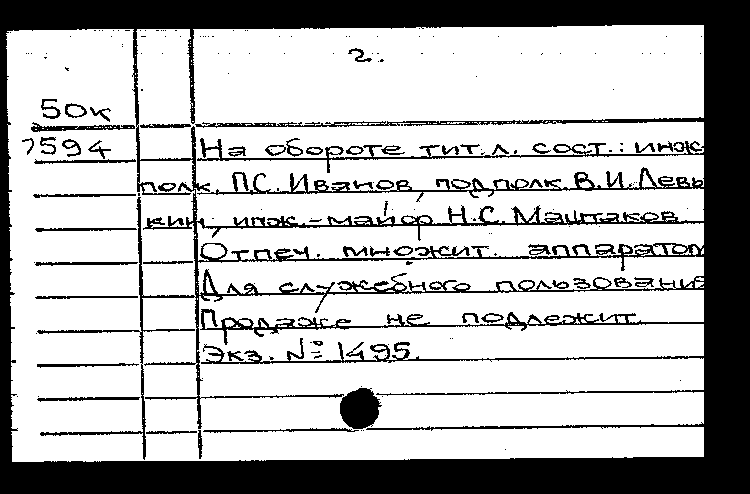 2.
50к
7594
На обороте тит. л. сост.: инж
полк. П.С. Иванов, подполк. В.И. Левы
кин, инж.-майор Н.С. Маштаков
Отпеч. множит. аппаратом
Для служебного пользования
Продаже не подлежит.
Экз. № 1495.